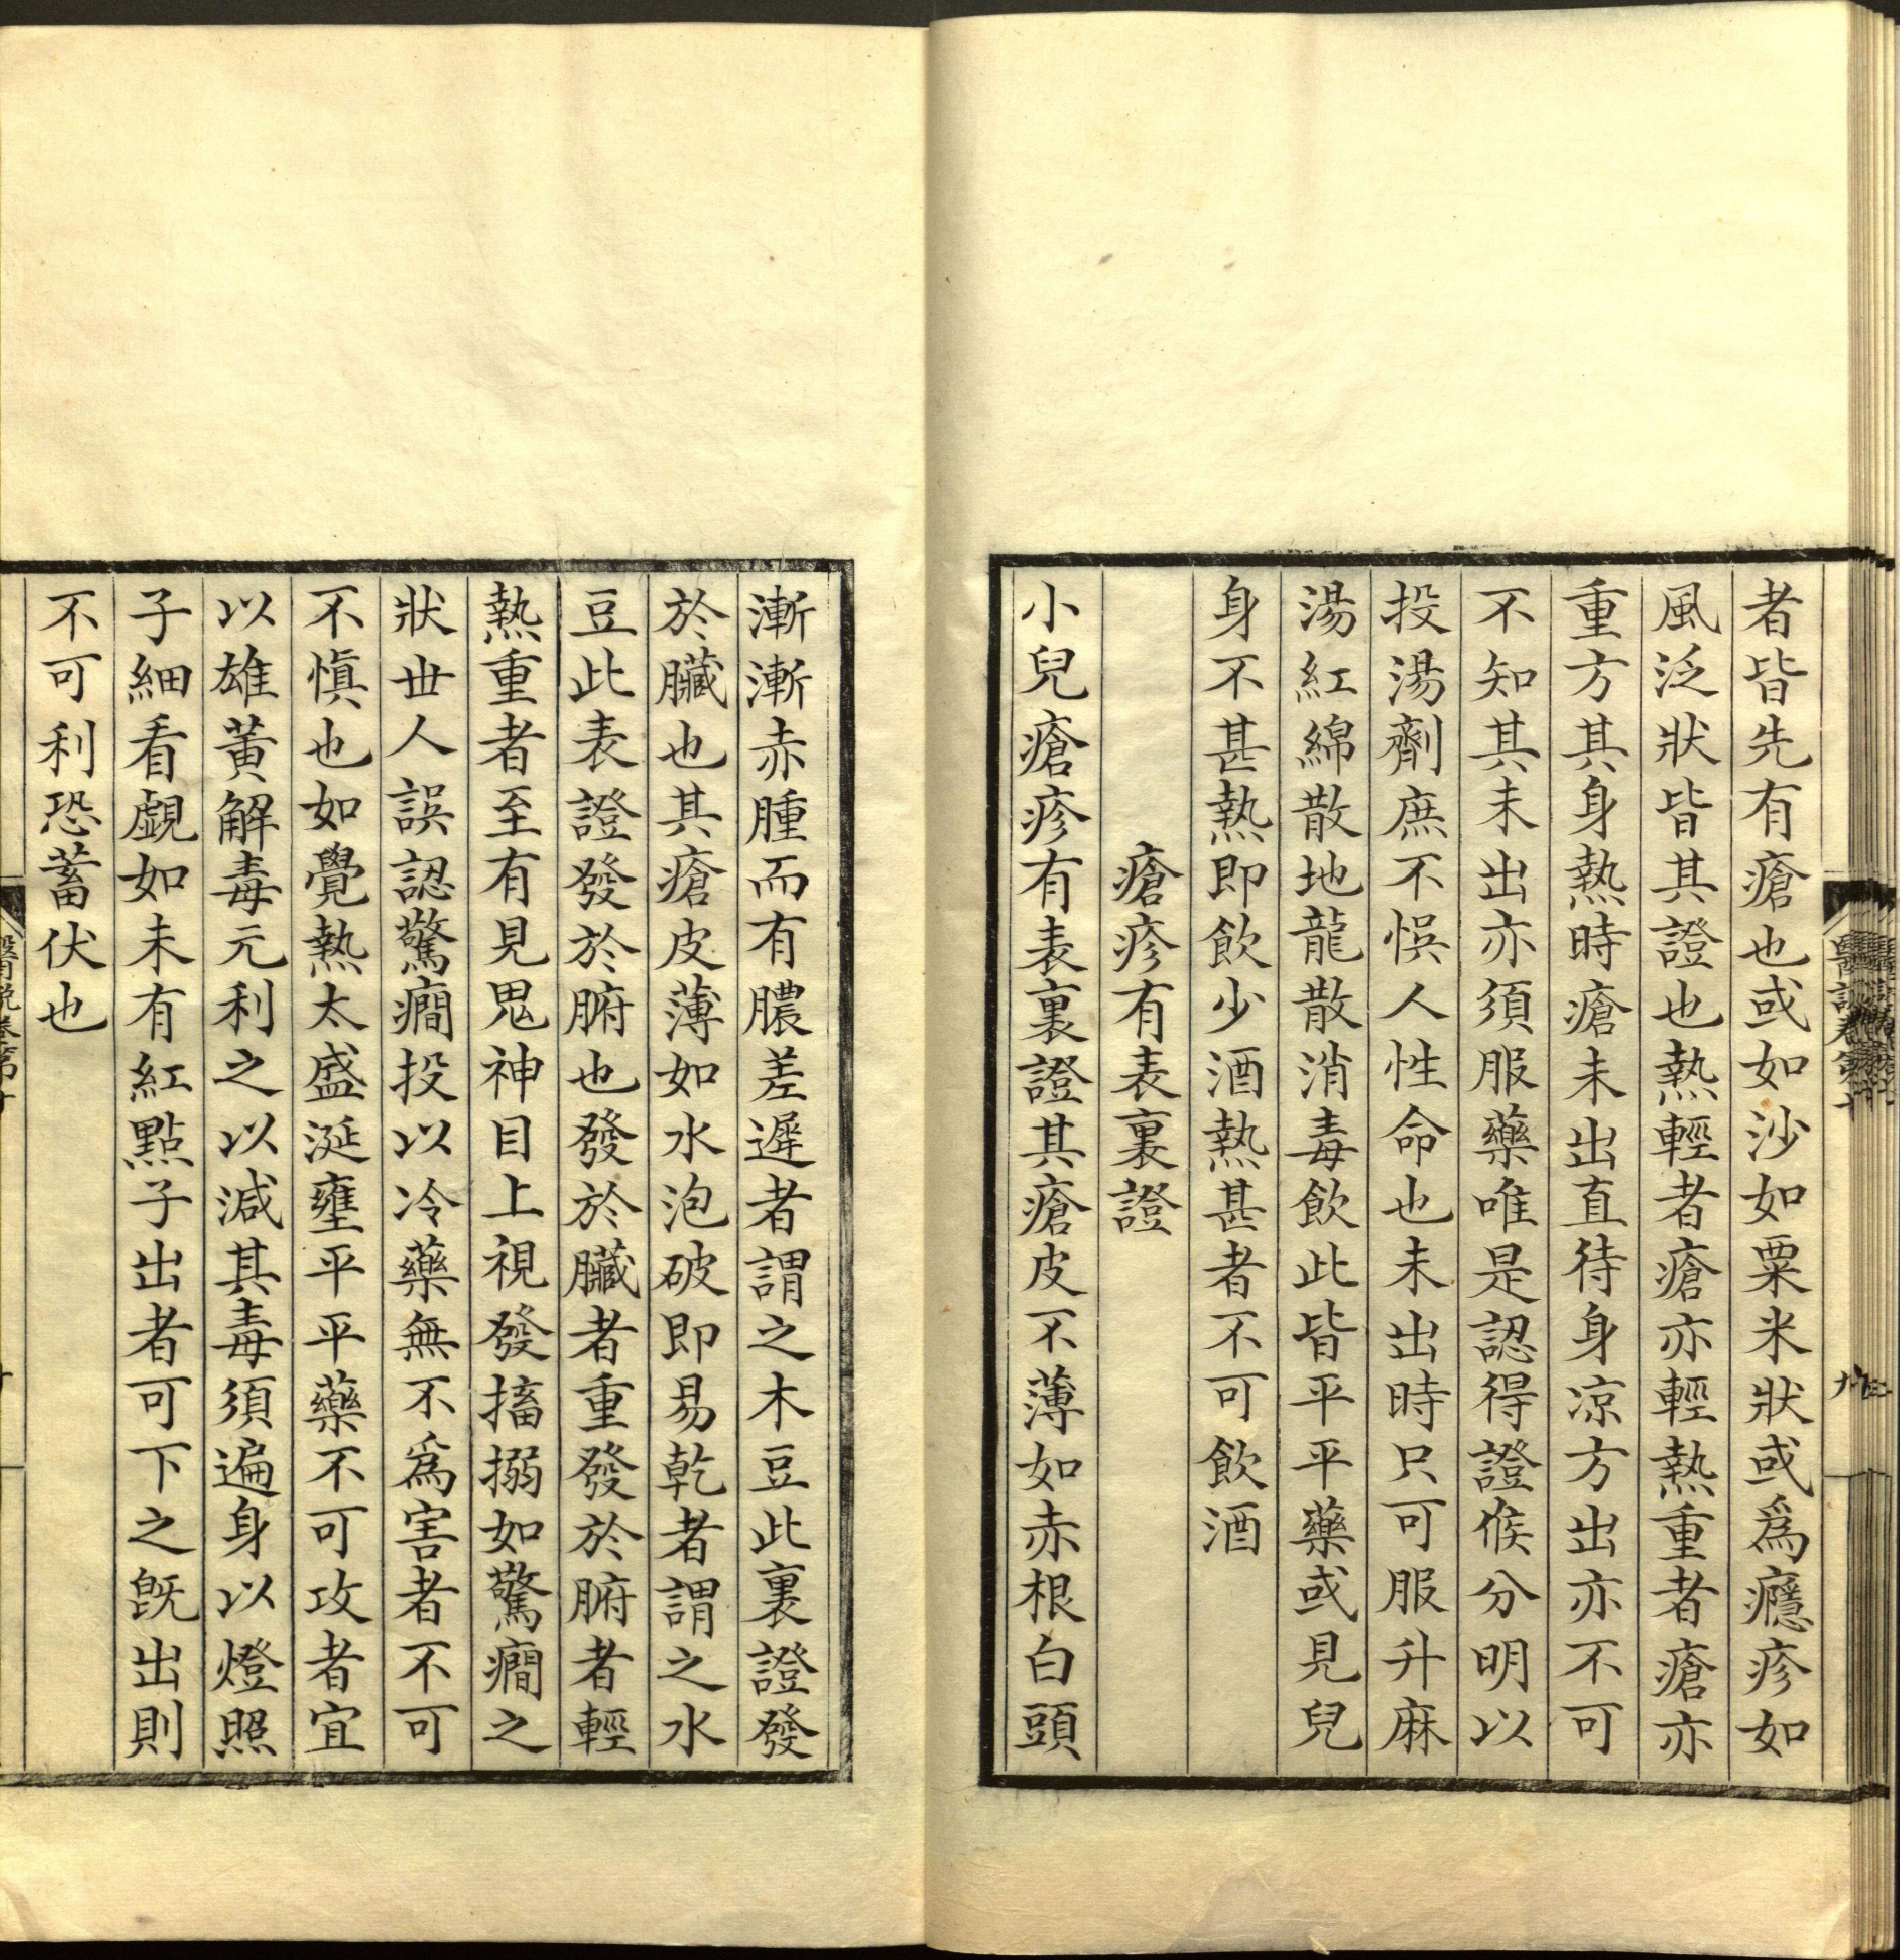 者皆先有瘡也或如沙如粟米狀或爲癮疹如
風泛狀皆其證也熱輕者瘡亦輕熱重者瘡亦
重方其身熱時瘡未出直待身凉方出亦不可
不知其未出亦須服藥唯是認得證候分明以
投湯劑庶不悞人性命也未出時只可服升麻
湯紅綿散地龍散消毒飲此皆平平藥或見兒
身不甚熱即飲少酒熱甚者不可飲酒
瘡疹有表裏證
小兒瘡疹有表裏證其瘡皮不薄如赤根白頭
漸漸赤腫而有膿差遲者謂之木豆此裏證發
於臟也其瘡皮薄如水泡破即易乾者謂之水
豆此表證發於腑也發於臟者重發於腑者輕
熱重者至有見鬼神目上視發搐搦如驚癇之
狀世人誤認驚癇投以冷藥無不爲害者不可
不慎也如覺熱太盛涎壅平平藥不可攻者宜
以雄黃解毒元利之以減其毒須遍身以燈照
子細看覷如未有紅點子出者可下之旣出則
不可利恐蓄伏也
醫說卷第十